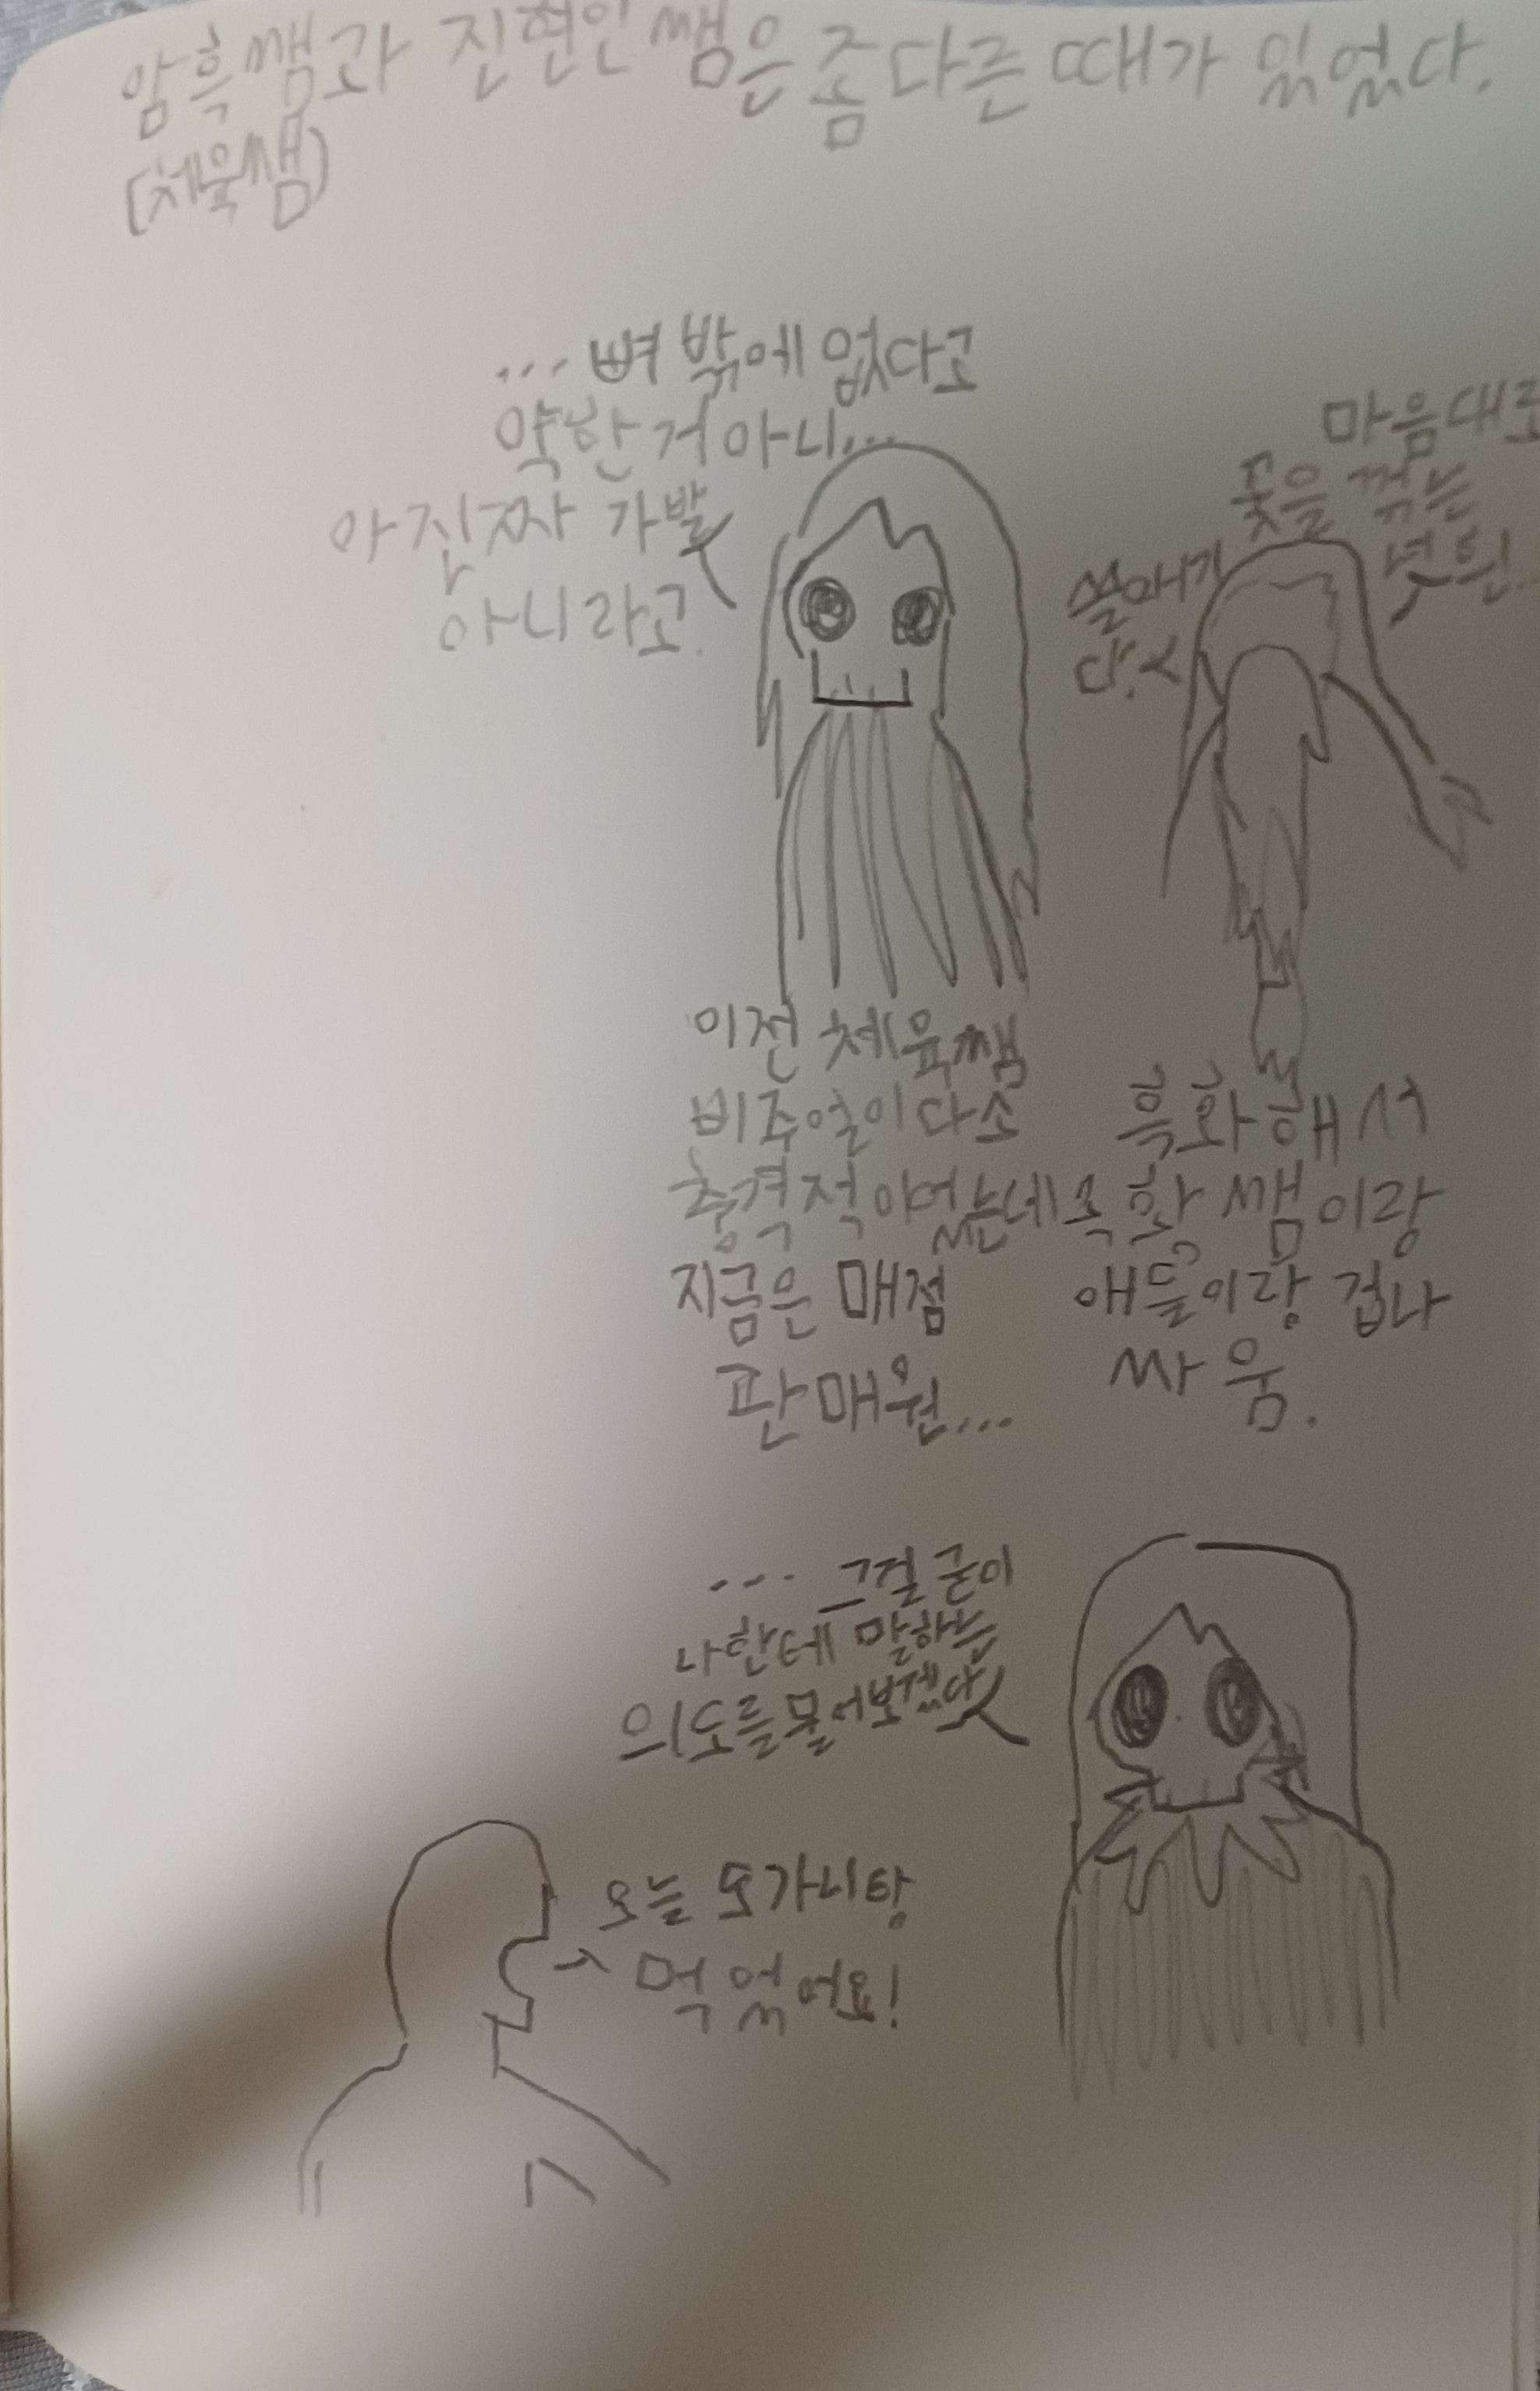 암흑쌤과 진현인쌤은 좀 다른 때가 있었다.
(체육쌤)
... 뼈 밖에 없다고
약한 거 아니...
아 진짜 가발
아니라고.
마음대로
꽃을 꺾는
쓸어주기
이전 체육쌤
비주얼이 다소
충격적이었는데
지금은 매점
판매원...
흑화해서
쌤이랑
애들이랑 겁나
싸움.
... 그걸 굳이
나한테 말하는
의도를 물어보겠다
오늘 도가니탕
먹었어요!